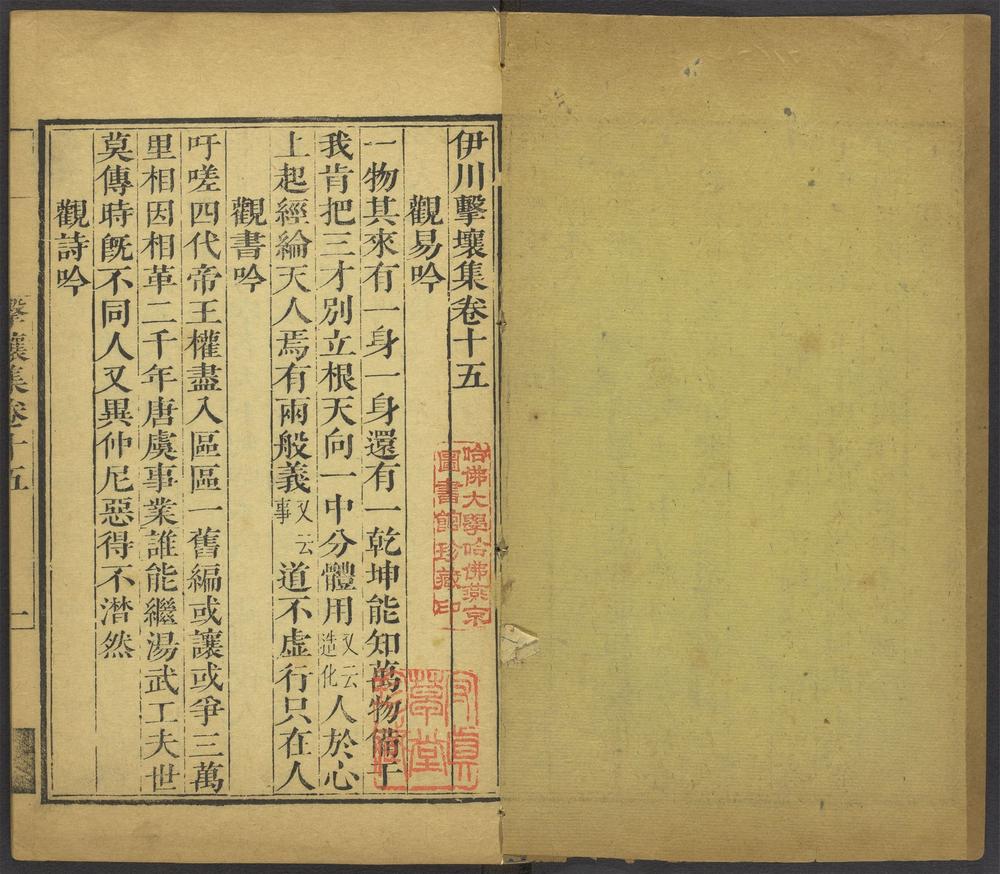 伊川擊壤集卷十五
觀易吟
一物其來有一身一身還有一乾坤能知萬物備于
我肯把三才別立根天向一中分體用又云造化人於心
上起經綸天人焉有兩般義又云事道不虛行只在人
觀書吟
吁嗟四代帝王權盡入區區一舊編或讓或爭三萬
里相因相革二千年唐虞事業誰能繼湯武工夫世
莫傳時旣不同人又異仲尼惡得不潸然
觀詩吟
擊壤集卷十五
一
哈佛大學哈佛燕京
圖書館珍藏印
草堂